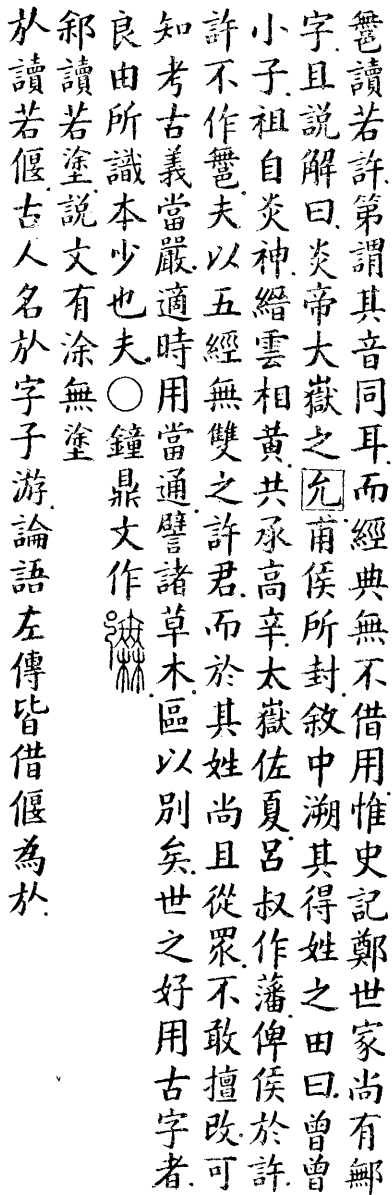 鄦讀若許第謂其音同耳而經典無不借用惟史記鄭世家尚有鄦
字且説解曰炎帝大嶽之允甫侯所封敘中溯其得姓之田曰曾曾
小子祖自炎神縉雲相黄共承高辛太嶽佐夏呂叔作藩俾侯於許
許不作鄦夫以五經無雙之許君而於其姓尚且從眾不敢擅改可
知考古義當嚴適時用當通譬諸草木區以別矣世之好用古字者
良由所識本少也夫○鐘鼎文作
䣄讀若塗説文有涂無塗
㫃讀若偃古人名㫃字子游論語左傳皆借偃為㫃